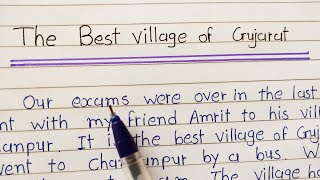 The Best village of Gujarat
Our exams were over in the last
ent with my friend Amrit to his vil
hanpur. It is the best village of Guj
vent to Cha unpur by a bus. W
The village ha